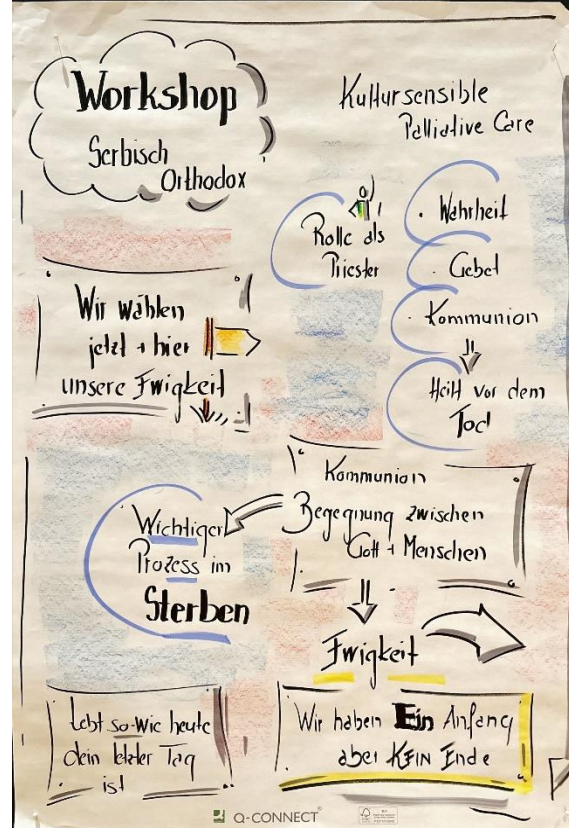 Workshop
Serbisch
Orthodox
Kultursensible
Palliative Care
Rolle als
Priester
· Wahrheit
· Gebet
· Kommunion
Heilt vor dem
Tod
Wir wählen
jetzt + hier
unsere Ewigkeit
Kommunion
Begegnung zwischen
Gott + Menschen
Wichtiger
Prozess im
Sterben
Ewigkeit
Lebt so wie heute
dein letzter Tag
ist
Wir haben Ein Anfang
aber KEIN Ende
Q-CONNECT®